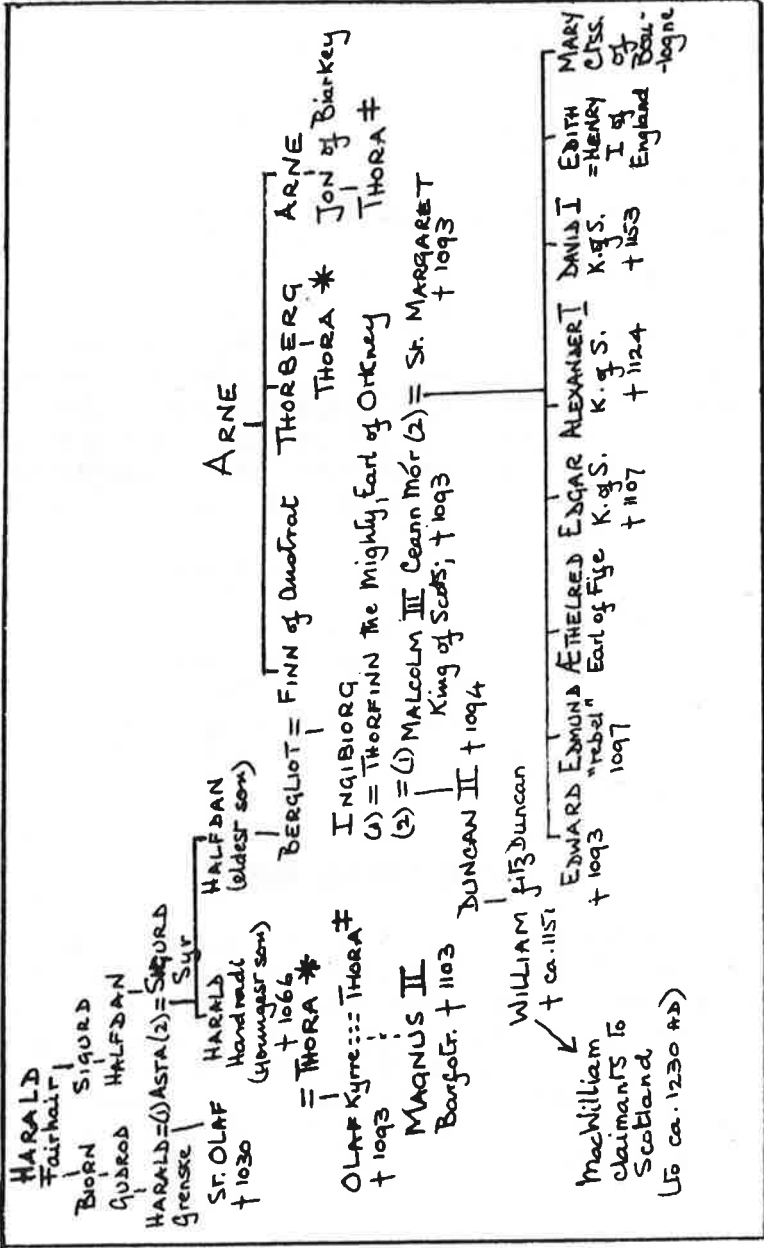 HARALD
Fairhair
BIORN SIGURD
GUDROD HALFDAN
HARALD=(1)ASTA(2)=SIGURD
Grenske Syr
ST. OLAF
+ 1030
HARALD
Hardradi
(youngest son)
+ 1066
= THORA *
HALFDAN
(eldest son)
OLAF Kyrre:::THORA ‡
+ 1093
MAGNUS II
Barfotr. + 1103
ARNE
BERGLIOT = FINN of Austrat THORBERG ARNE
THORA * JON of Biarkey
THORA ‡
INGIBIORG
(1) = THORFINN the Mighty, Earl of Orkney
(2) = (1) MALCOLM III Ceann Mór (2) = St. MARGARET
King of Scots, + 1093 + 1093
DUNCAN II + 1094
WILLIAM fitz Duncan
+ ca. 1151
MacWilliam
claimants to
Scotland
(to ca. 1230 AD)
EDWARD EDMUND ÆTHELRED EDGAR ALEXANDER I DAVID I EDITH MARY
+ 1093 "rebel" Earl of Fife K. of S. K. of S. K. of S. =HENRY Ctss.
1097 + 1107 + 1124 + 1153 I of of
England Bou-
-logne